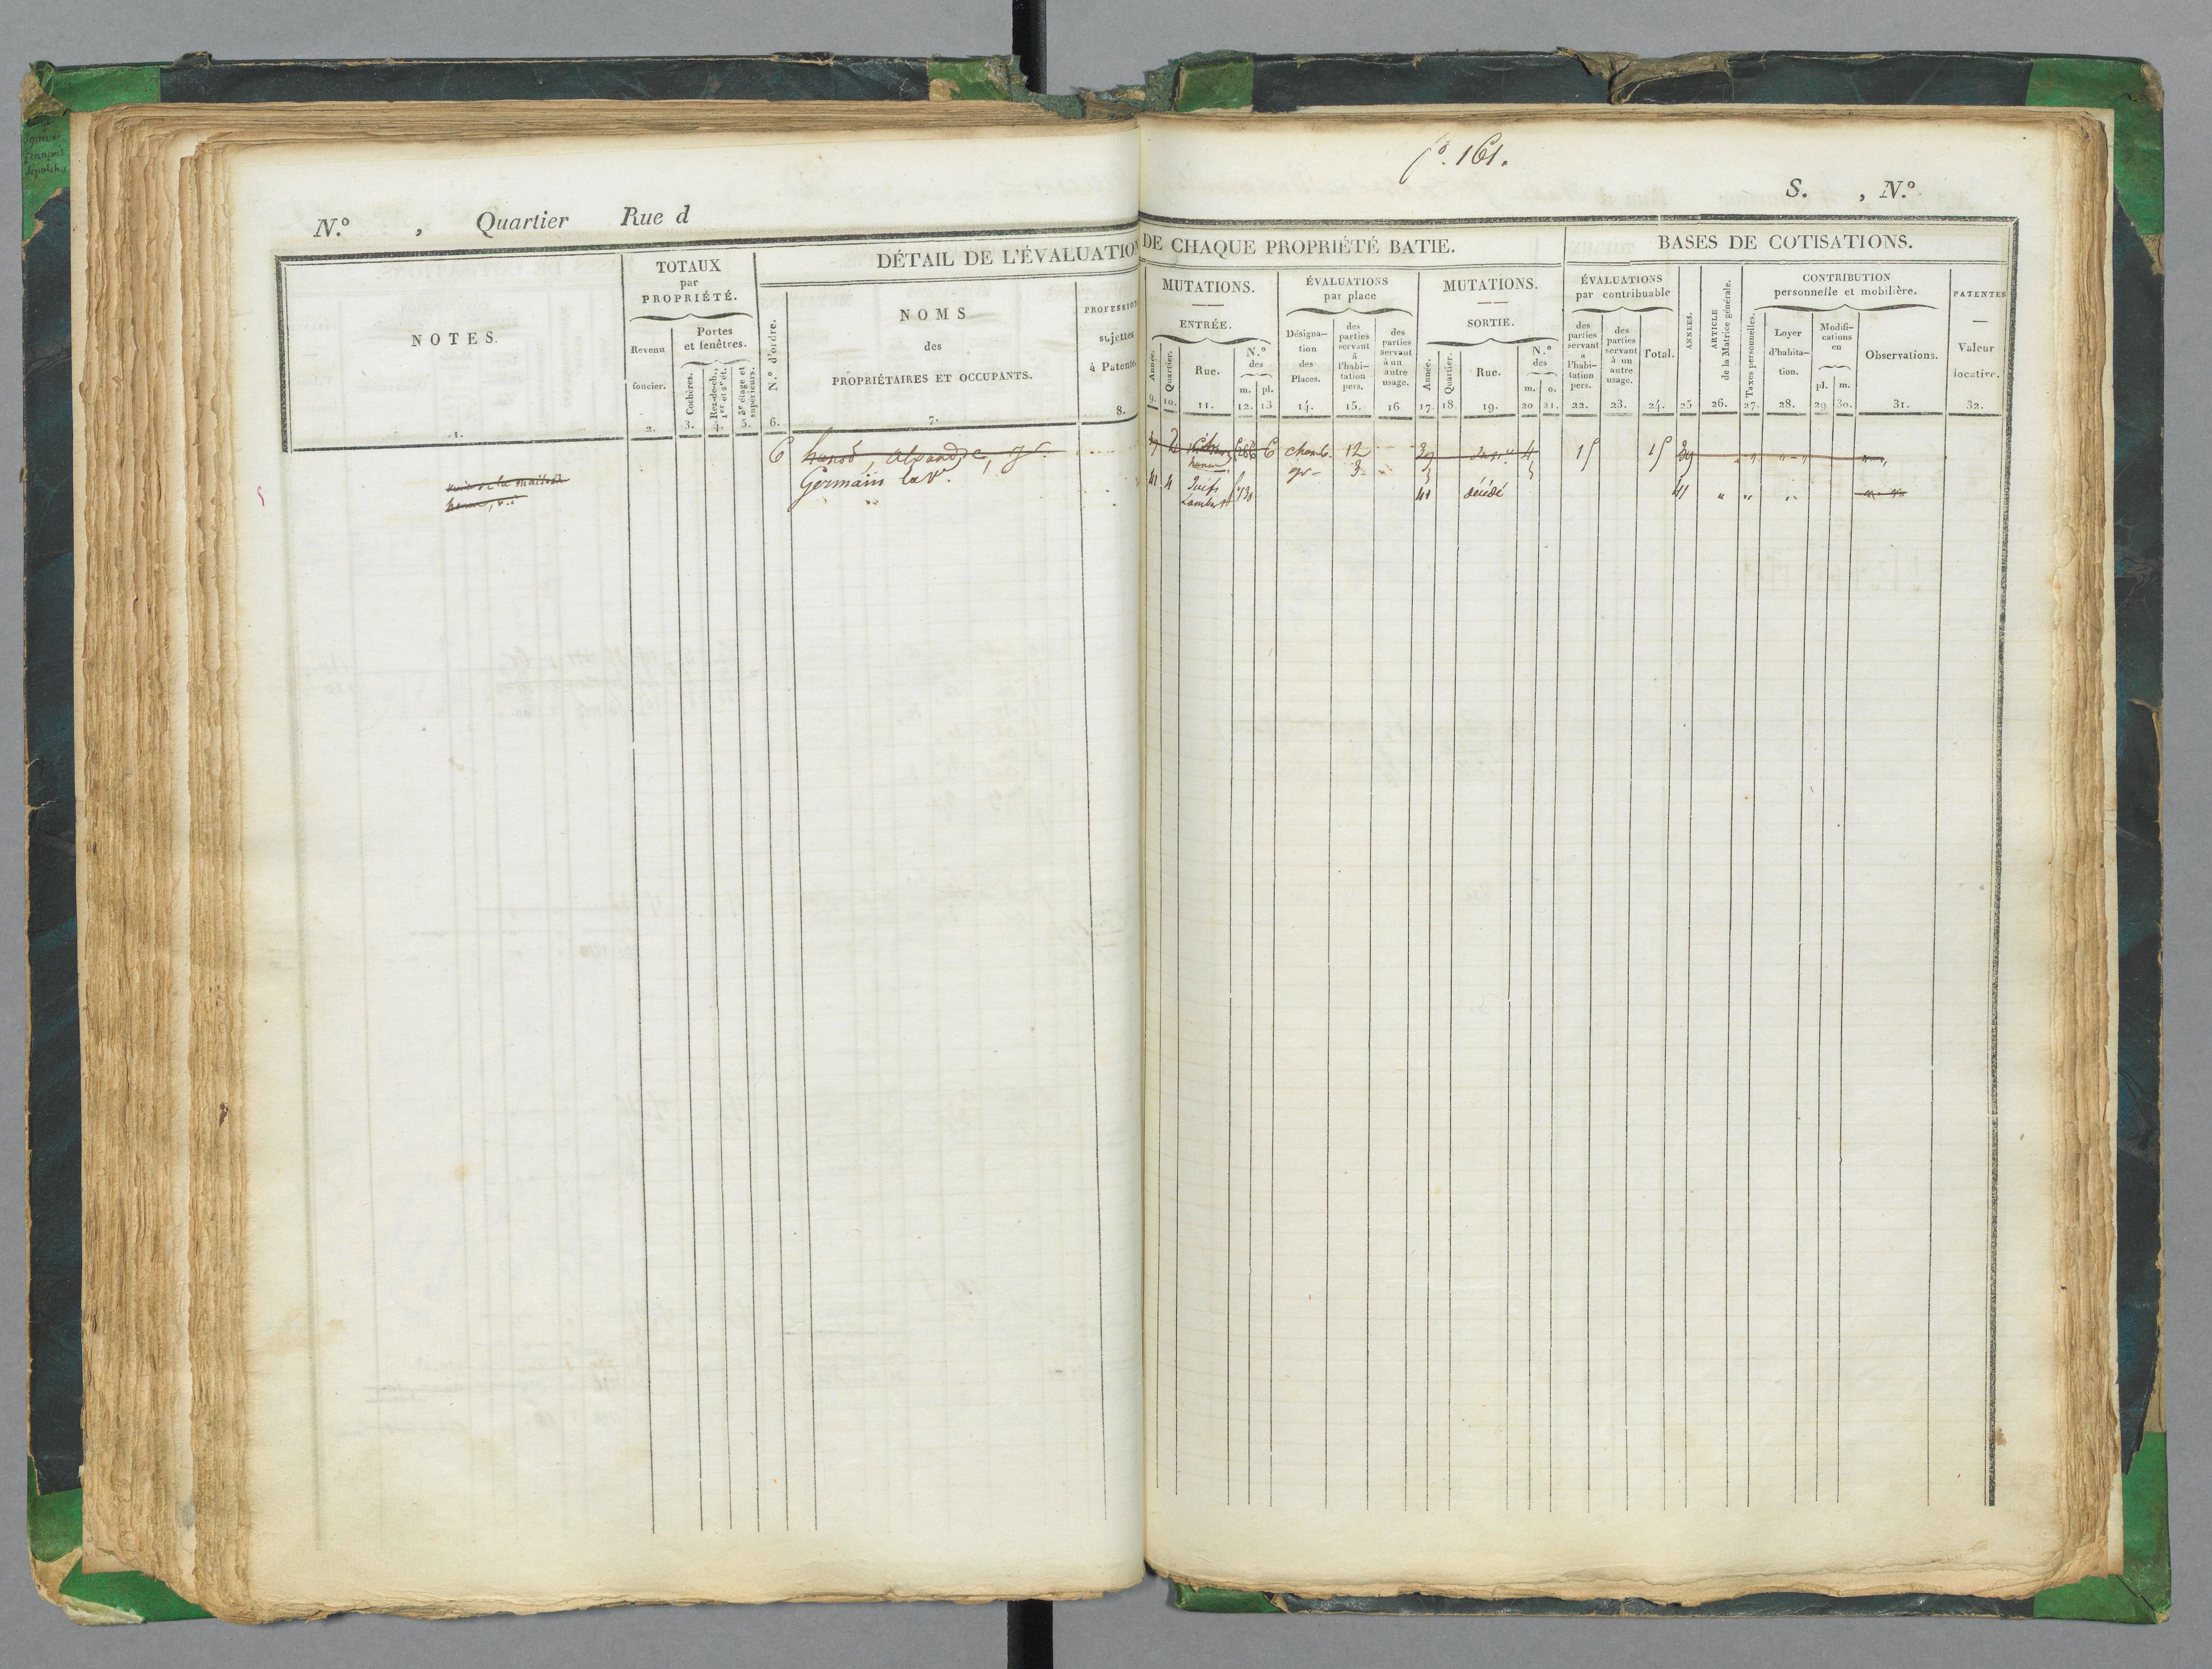 fo. 161.
N.º , Quartier Rue d
S. , N.º
DÉTAIL DE L'ÉVALUATION DE CHAQUE PROPRIÉTÉ BATIE.
BASES DE COTISATIONS.
NOTES.
1.
TOTAUX
par
PROPRIÉTÉ.
Revenu
foncier.
2.
Portes
et fenêtres.
Cochères.
3.
Rez-de-ch.,
1er et 2e ét.
4.
3e étage et
supérieurs.
5.
N.º d'ordre.
6.
NOMS
des
PROPRIÉTAIRES ET OCCUPANTS.
7.
PROFESSION
sujettes
à Patente.
8.
MUTATIONS.
ENTRÉE.
Année.
9.
Quartier.
10.
Rue.
11.
N.º
des
m. pl.
12. 13
ÉVALUATIONS
par place
Désigna-
tion
des
Places.
14.
des
parties
servant
à
l'habi-
tation
pers.
15.
des
parties
servant
à un
autre
usage.
16
MUTATIONS.
SORTIE.
Année.
17.
Quartier.
18
Rue.
19.
N.º
des
m. o.
20 21.
ÉVALUATIONS
par contribuable
des
parties
servant
à
l'habi-
tation
pers.
22.
des
parties
servant
à un
autre
usage.
23.
Total.
24.
ANNÉES.
25
ARTICLE
de la Matrice générale.
26.
CONTRIBUTION
personnelle et mobilière.
Taxes personnelles.
27.
Loyer
d'habita-
tion.
28.
Modifi-
cations
en
pl. m.
29 30.
Observations.
31.
PATENTES
Valeur
locative.
32.
6 chamb. 12 39 4 15 15 39
Germain la Ve. 41 4 Juifs 130 gr 3 41 décédé 41
Lambert